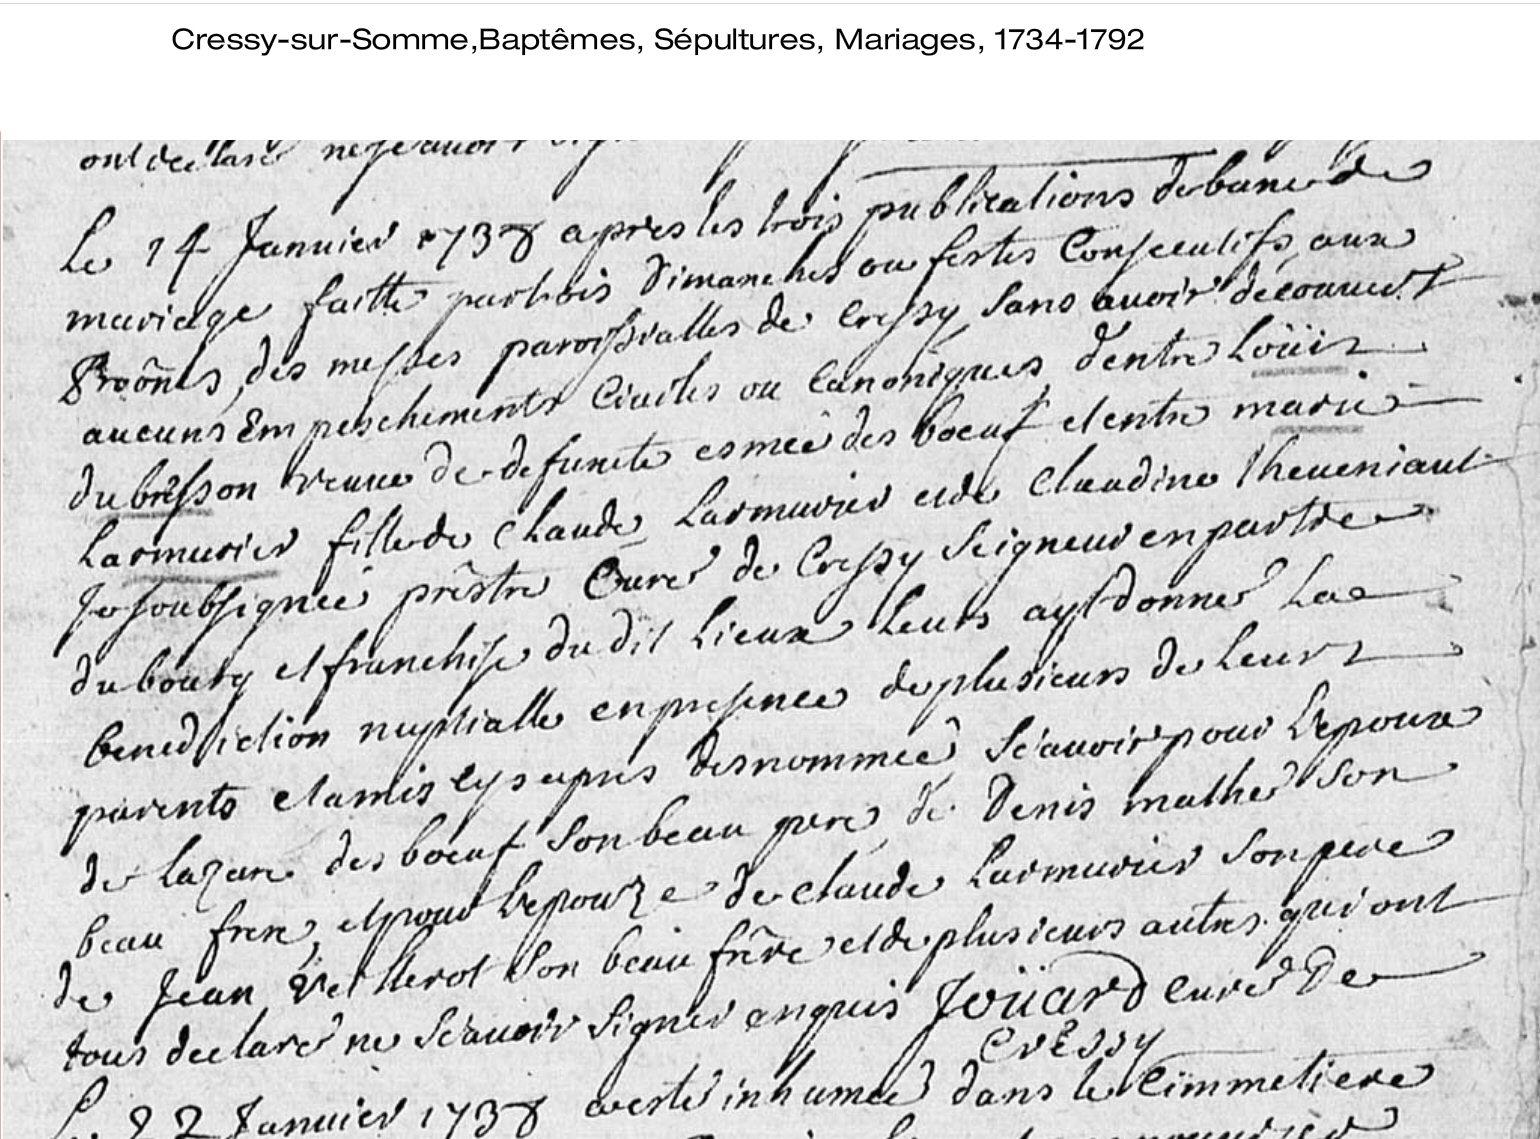 Cressy-sur-Somme,Baptêmes, Sépultures, Mariages, 1734-1792
ont declaré ne sçavoir
Le 14 Januier 1738 apres les trois publications de bans de
mariage faitte par trois Dimanches ou festes Consecutifs, aux
Proônes, des messes paroissialles de Cressy sans auoir découuert
aucuns Empeschements Ciuiles ou Canoniques d'entre Loüis
dubresson veuue de defuncte esmeé des boeuf et entre marie
Larmurier fille de Claude Larmurier et de Claudine Theueniaut
Je soubsigneé prêstre Curé de Cressy Seigneur en partie
du bourg et franchise du dit Lieux Leurs ayt donné La
benediction nuptialle en presence de plusieurs de Leurs
parents et amis cy apres desnommeé Sçauoir pour Lepoux
de Lazare des boeuf Son beau pere de Denis mathé Son
beau frere, et pour Lepouze de Claude Larmurier Son pere
de Jean Vellerot Son beau frêre et de plusieurs autres qui ont
tous declaré ne Sçauoir Signer enquis Joüard curé De
Cressy
Le 22 Januier 1738 a esté inhumeé dans le Cimmetiere